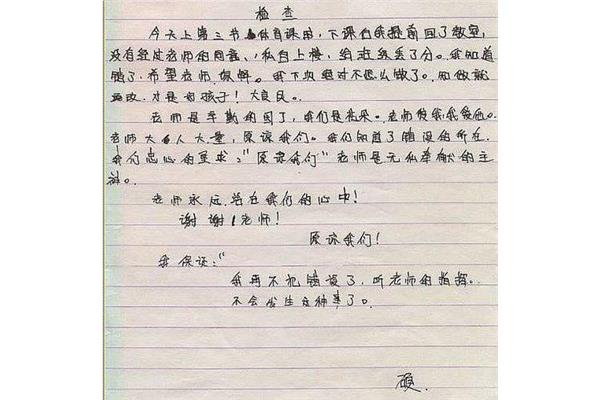 检查
今天上第三节体育课时,下课后我提前回了教室,
没有经过老师的同意,私自上楼,给班级丢了分。我知道
错了,希望老师原谅。我下次绝对不怎么做了。知做就
要改,才是好孩子!大良民。
老师是辛勤的园丁,我们是花朵。老师
老师大人大量,原谅我们。我们知道了错误的所在,
我们忠心的要求:“原谅我们”老师是无私奉献的主
老师永远活在我们的心中!
谢谢!老师!
原谅我们!
我保证:“
我再不犯错误了,听老师的指挥。
不会发生这种事了。